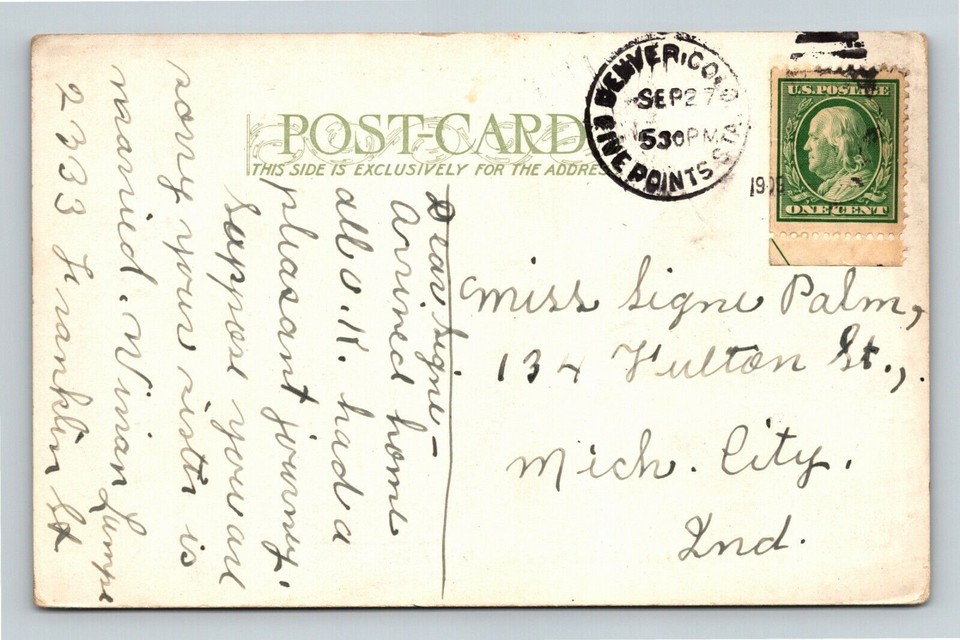 POST-CARD
THIS SIDE IS EXCLUSIVELY FOR THE ADDRES
DENVER, COLO.
SEP 27
530 PM
FIVE POINTS STA.
U.S. POSTAGE
ONE CENT
Miss Signe Palm,
134 Fulton St.,
Mich. City.
Ind.
Dear Signe—
Arrived home
all o.k. had a
pleasant journey.
Suppose you are
sorry your sister is
married. Vivian Lumpe
2333 Franklin St